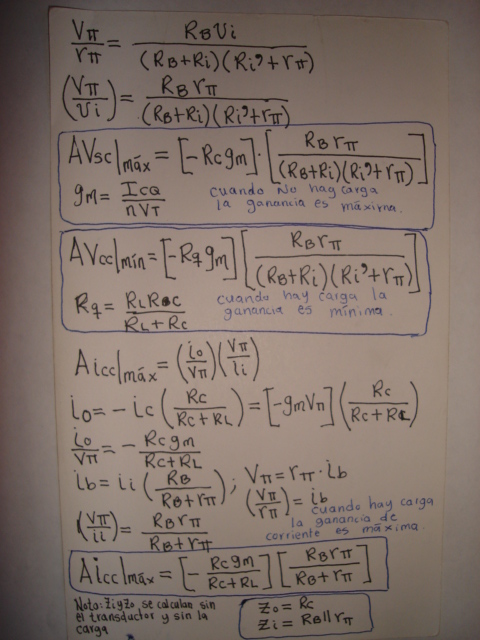 Vπ/rπ = RBvi/(RB+Ri)(Ri'+rπ)
(Vπ/vi) = RBrπ/(RB+Ri)(Ri'+rπ)
AVsc|máx = [-Rcgm]·[RBrπ/(RB+Ri)(Ri'+rπ)]
gm = ICQ/nVT cuando No hay carga
la ganancia es máxima.
AVcc|mín = [-Rq gm] [RBrπ/(RB+Ri)(Ri'+rπ)]
Rq = RLRC/RL+Rc cuando hay carga la
ganancia es mínima.
Aicc|máx = (io/Vπ)(Vπ/ii)
io = -ic (Rc/Rc+RL) = [-gmVπ] (Rc/Rc+RL)
io/Vπ = - Rcgm/Rc+RL
ib = ii (RB/RB+rπ) ; Vπ = rπ·ib
(Vπ/rπ) = ib
(Vπ/ii) = RBrπ/RB+rπ
cuando hay carga
la ganancia de
corriente es máxima.
Aicc|máx = [- Rcgm/Rc+RL] [RBrπ/RB+rπ]
Nota: Zi y Zo, se calculan sin
el transductor y sin la
carga
Zo = Rc
Zi = RB||rπ